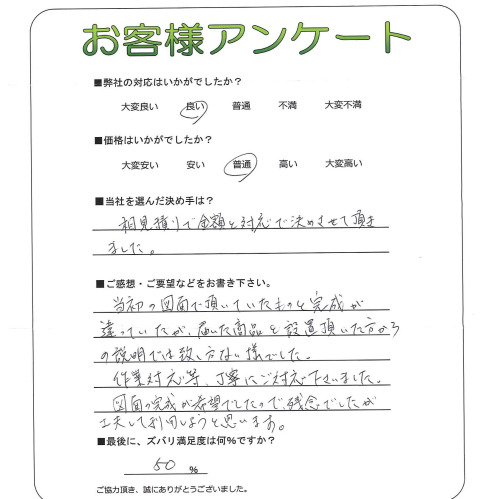 お客様アンケート
■弊社の対応はいかがでしたか？
大変良い 良い 普通 不満 大変不満
■価格はいかがでしたか？
大変安い 安い 普通 高い 大変高い
■当社を選んだ決め手は？
相見積りで金額と対応で決めさせて頂き
ました。
■ご感想・ご要望などをお書き下さい。
当初の図面で頂いていたものと完成が
違っていたが、届いた商品と設置頂いた方から
の説明では致し方ない様でした。
作業対応等、丁寧にご対応下さいました。
図面の完成が希望でしたので、残念でしたが
工夫して利用しようと思います。
■最後に、ズバリ満足度は何％ですか？
50 %
ご協力頂き、誠にありがとうございました。